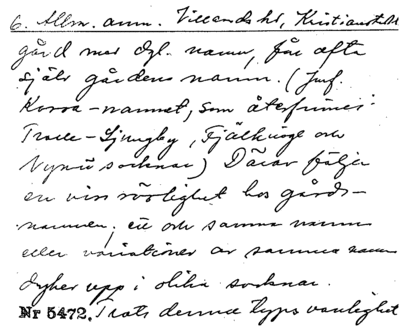 6. Allm. anm. Villands hd, Kristianst. l.
gård med dyl. namn, får ofta
själv gårdens namn. (Jmf.
Korsa-namnet, som återfinnes i
Trolle-Ljungby, Fjälkinge och
Nymö socknar) Därav följer
en viss rörlighet hos gårds-
namnen; ett och samma namn
eller variationer av samma namn
dyker upp i olika socknar.
Nr 5472. Trots denna typs vanlighet